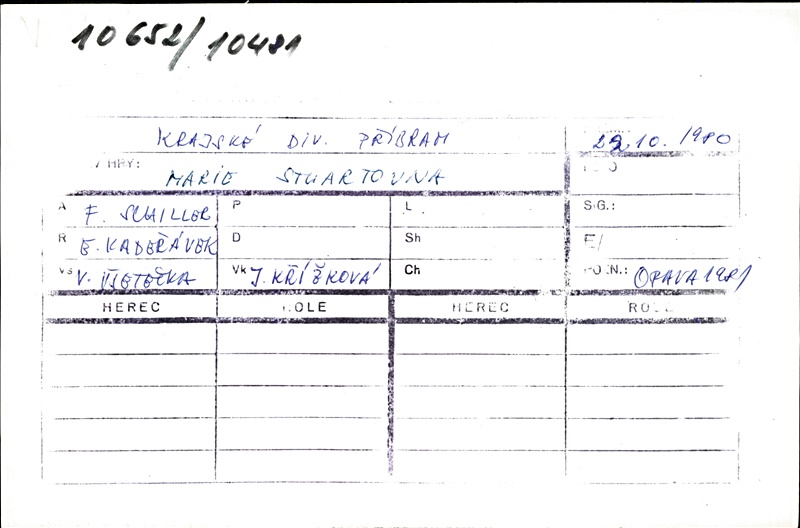 10652/10481
KRAJSKÉ DIV. PŘÍBRAM 29.10. 1980
HRY:
MARIE STUARTOVNA
A F. SCHILLER P L SG.:
R E. KADEŘÁVEK D Sh
Vs V. VJETEČKA Vk J. KŘÍŽKOVÁ Ch POZN.: OPAVA 1981
HEREC ROLE HEREC ROLE